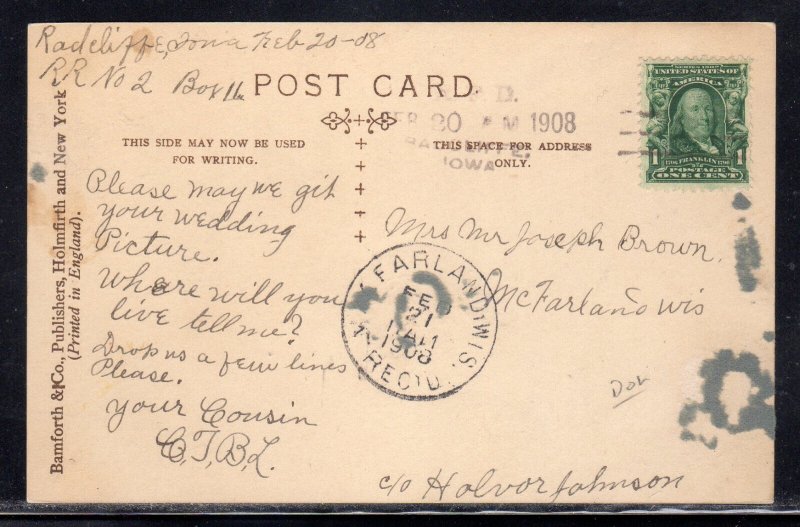 Radcliffe, Iowa Feb 20-08
RR No 2 Box 16
POST CARD
R.F.D.
FEB 20 A M 1908
RADCLIFFE,
IOWA
SERIES 1902
UNITED STATES OF
1706 FRANKLIN 1790
1 1
POSTAGE
ONE CENT
THIS SIDE MAY NOW BE USED
FOR WRITING.
THIS SPACE FOR ADDRESS
ONLY.
Bamforth & Co., Publishers, Holmfirth and New York
(Printed in England).
Please may we git
your wedding
Picture.
Where will you
live tell me?
Drop us a few lines
Please.
your Cousin
C,T,B,L.
Mrs Mr Joseph Brown.
McFarland wis
McFARLAND, WIS.
FEB
21
1908
REC'D.
c/o Halvor Johnson